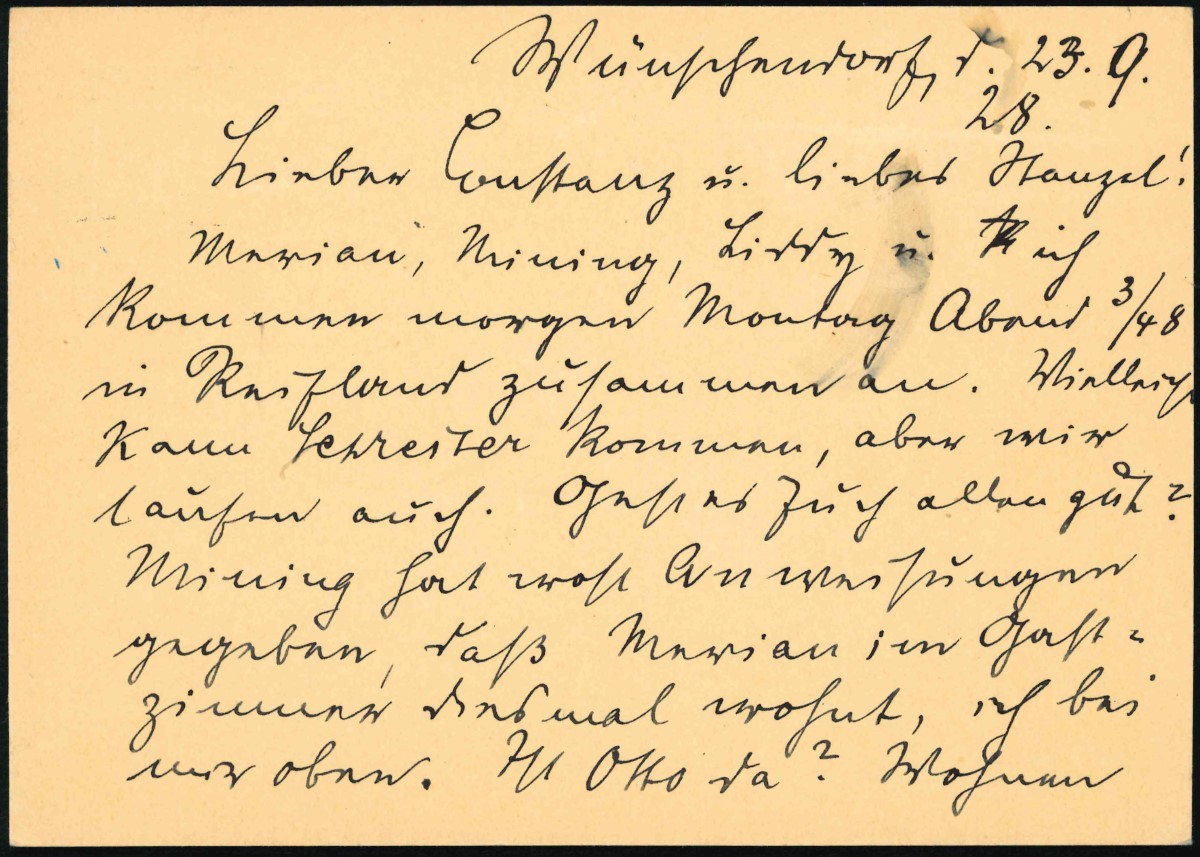 Wünschendorf, d. 23. 9.
28.
Lieber Constanz u. liebes Stanzel!
Merian, Mining, Liddy u. ich
kommen morgen Montag Abend 3/48
in Reifland zusammen an. Vielleich
kann kommen, aber wir
laufen auch. Geht es Euch allen gut?
Mining hat wohl Anweisungen
gegeben, daß Merian im Gast-
zimmer diesmal wohnt, ich bei
mir oben. Ist Otto da? Wohnen